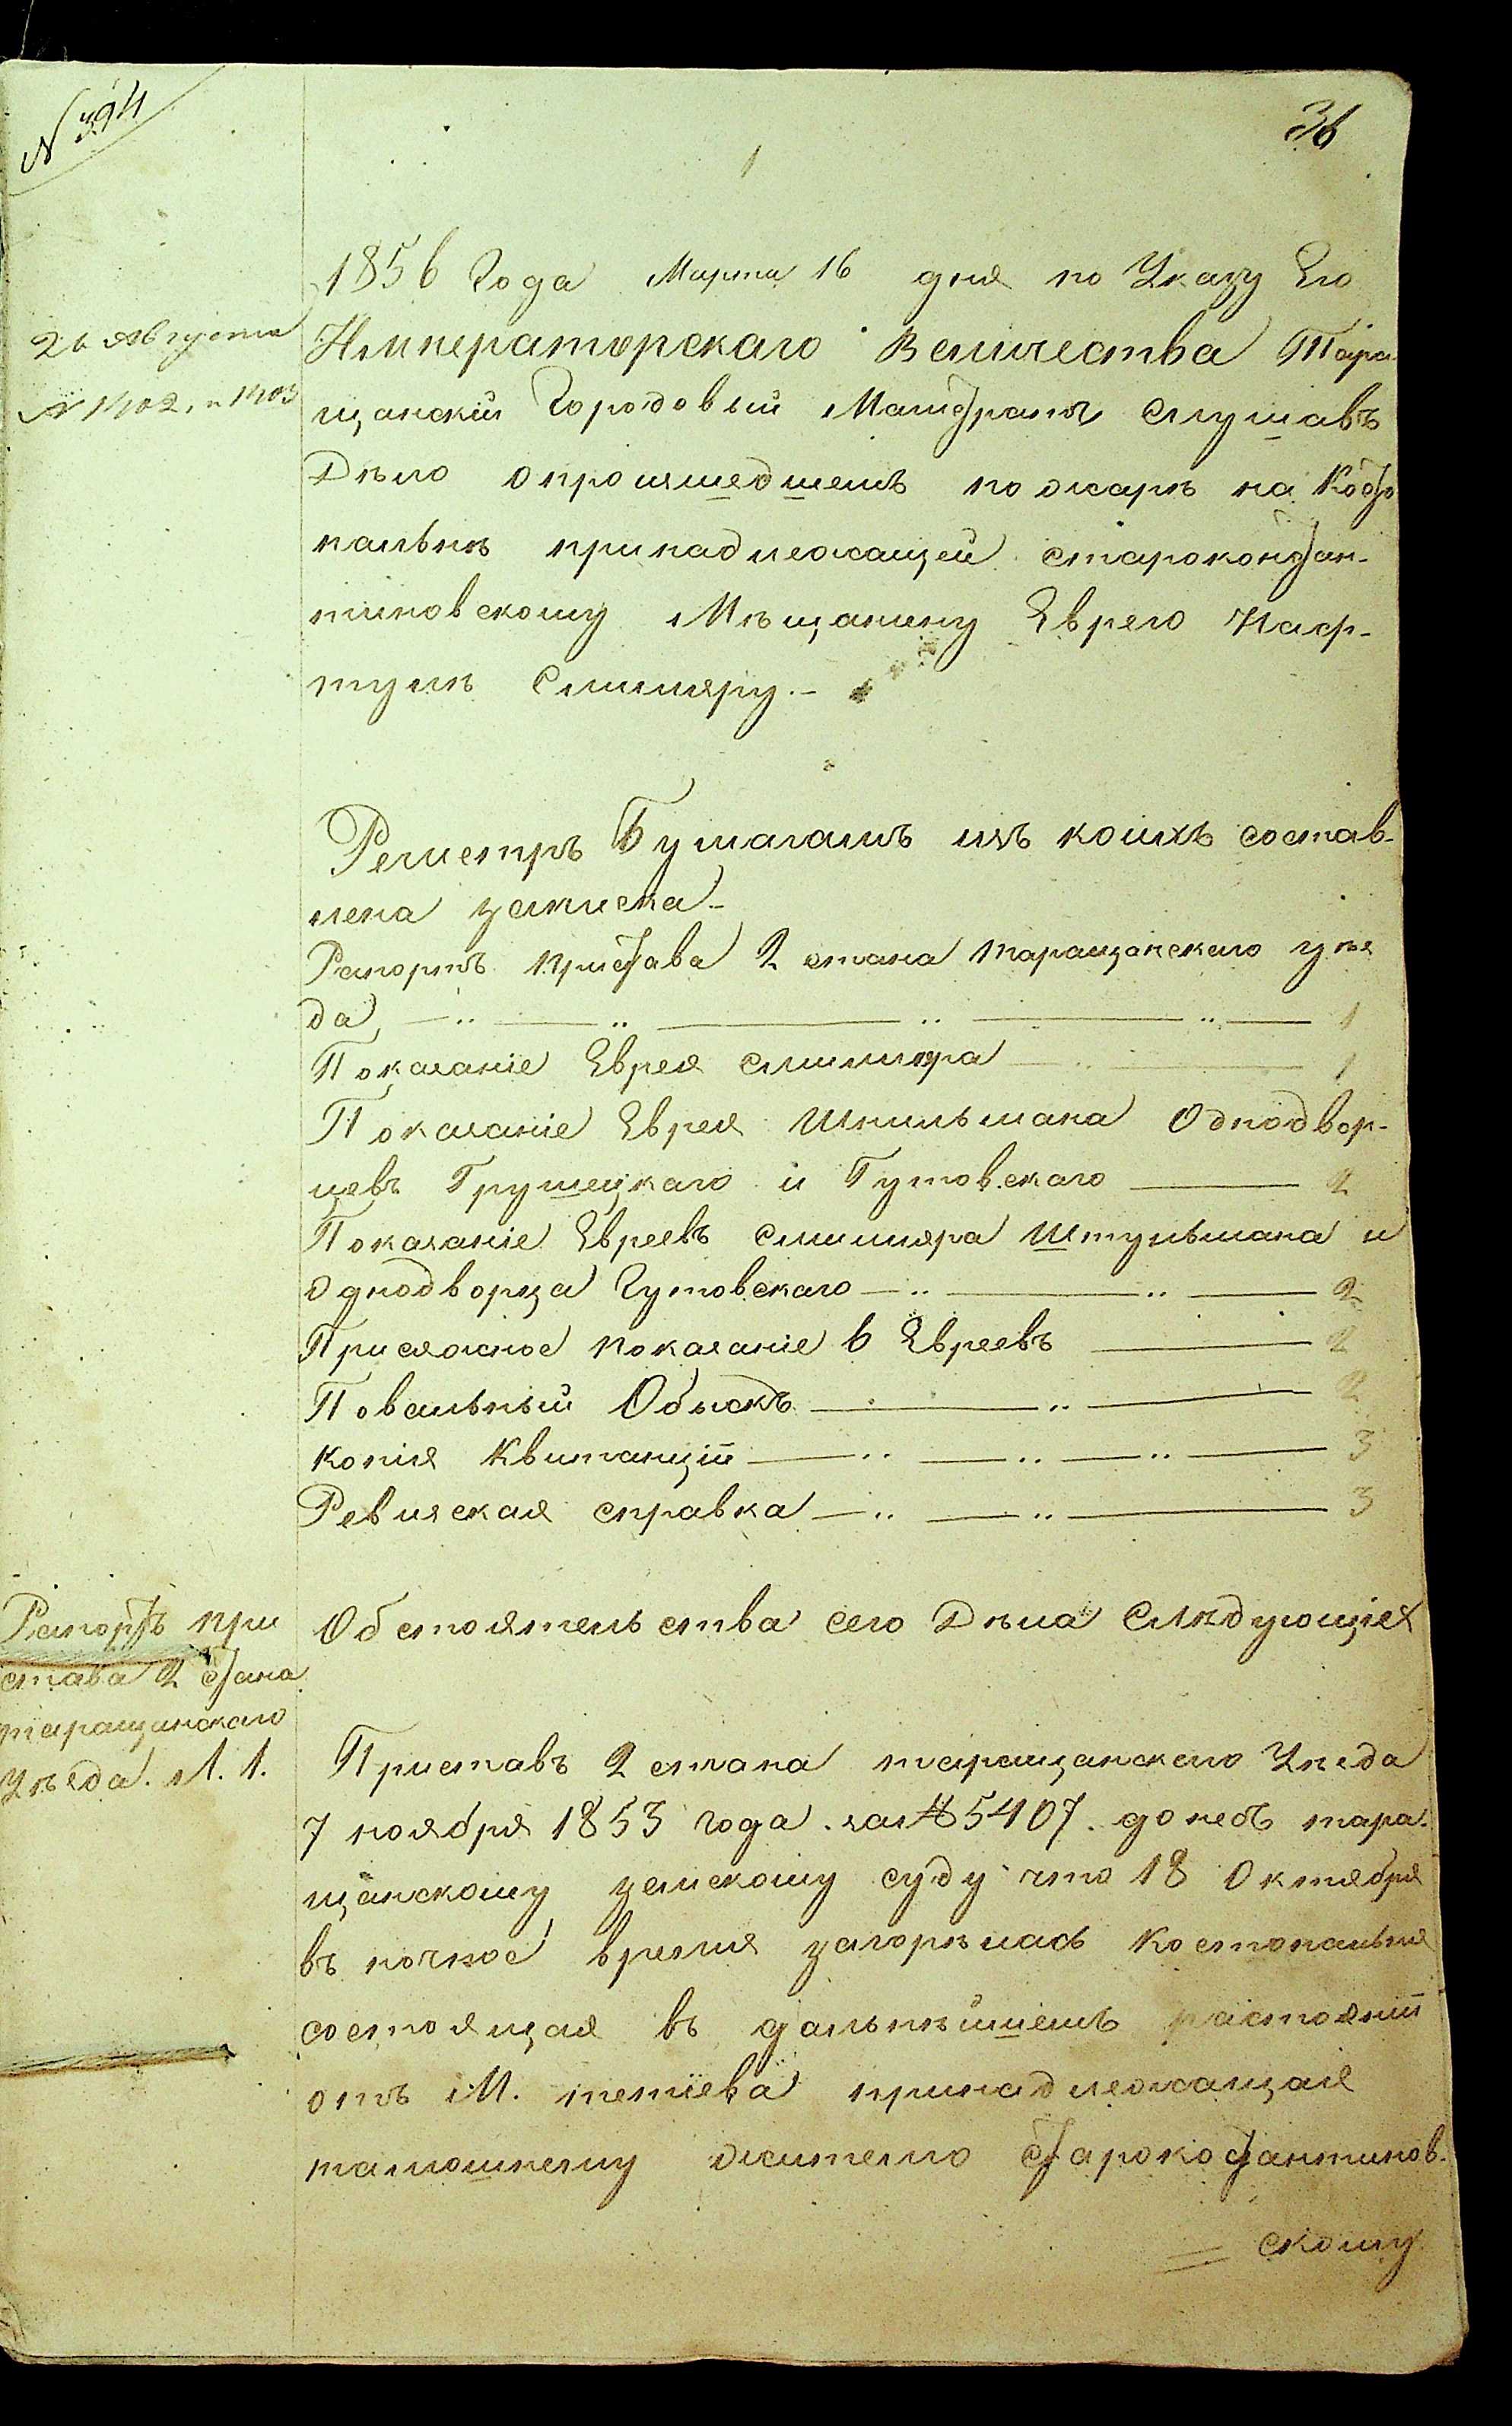 N 394
36
1
1856 Года Марта 16 дня по Указу Его
26 Августа
N 1702, и 1703
Императорскаго Величества Тара-
щанскій Городовый Магистратъ слушавъ
Дѣло опроизшедшемъ пожарѣ на Косто
пальнѣ принадлежащей староконстан-
тиновскому Мѣщанину Еврею Наф-
тулѣ Слишяру.-
Регистръ Бумагамъ изъ коихъ состав-
лена записка-
Рапортъ пристава 2 стана таращанскаго уѣз
да 1
Показаніе Еврея слишяра 1
Показаніе Еврея Шпильмана Однодвор-
цевъ Грушецкаго и Гутовскаго 2
Показаніе Евреевъ слишяра Штульмана и
Однодворца Гутовскаго 2
Присяжное показаніе 6 Евреевъ 2
Повальный Обыскъ 2
копія Квитанціи 3
Ревизская справка 3
Обстоятельства сего Дѣла Слѣдующіе
Рапортъ при
става 2 стана
таращанскаго
Уѣзда. Л. 1.
Приставъ 2 стана таращанскаго Уѣзда
7 ноября 1853 года за № 5407. донесъ тара-
щанскому земскому суду что 18 Октября
въ ночное время загорѣлась Костопальня
состоящая въ дальнѣйшемъ растояніи
отъ М. тетіева принадлежащая
тамошнему жителю старокостантинов-
скому